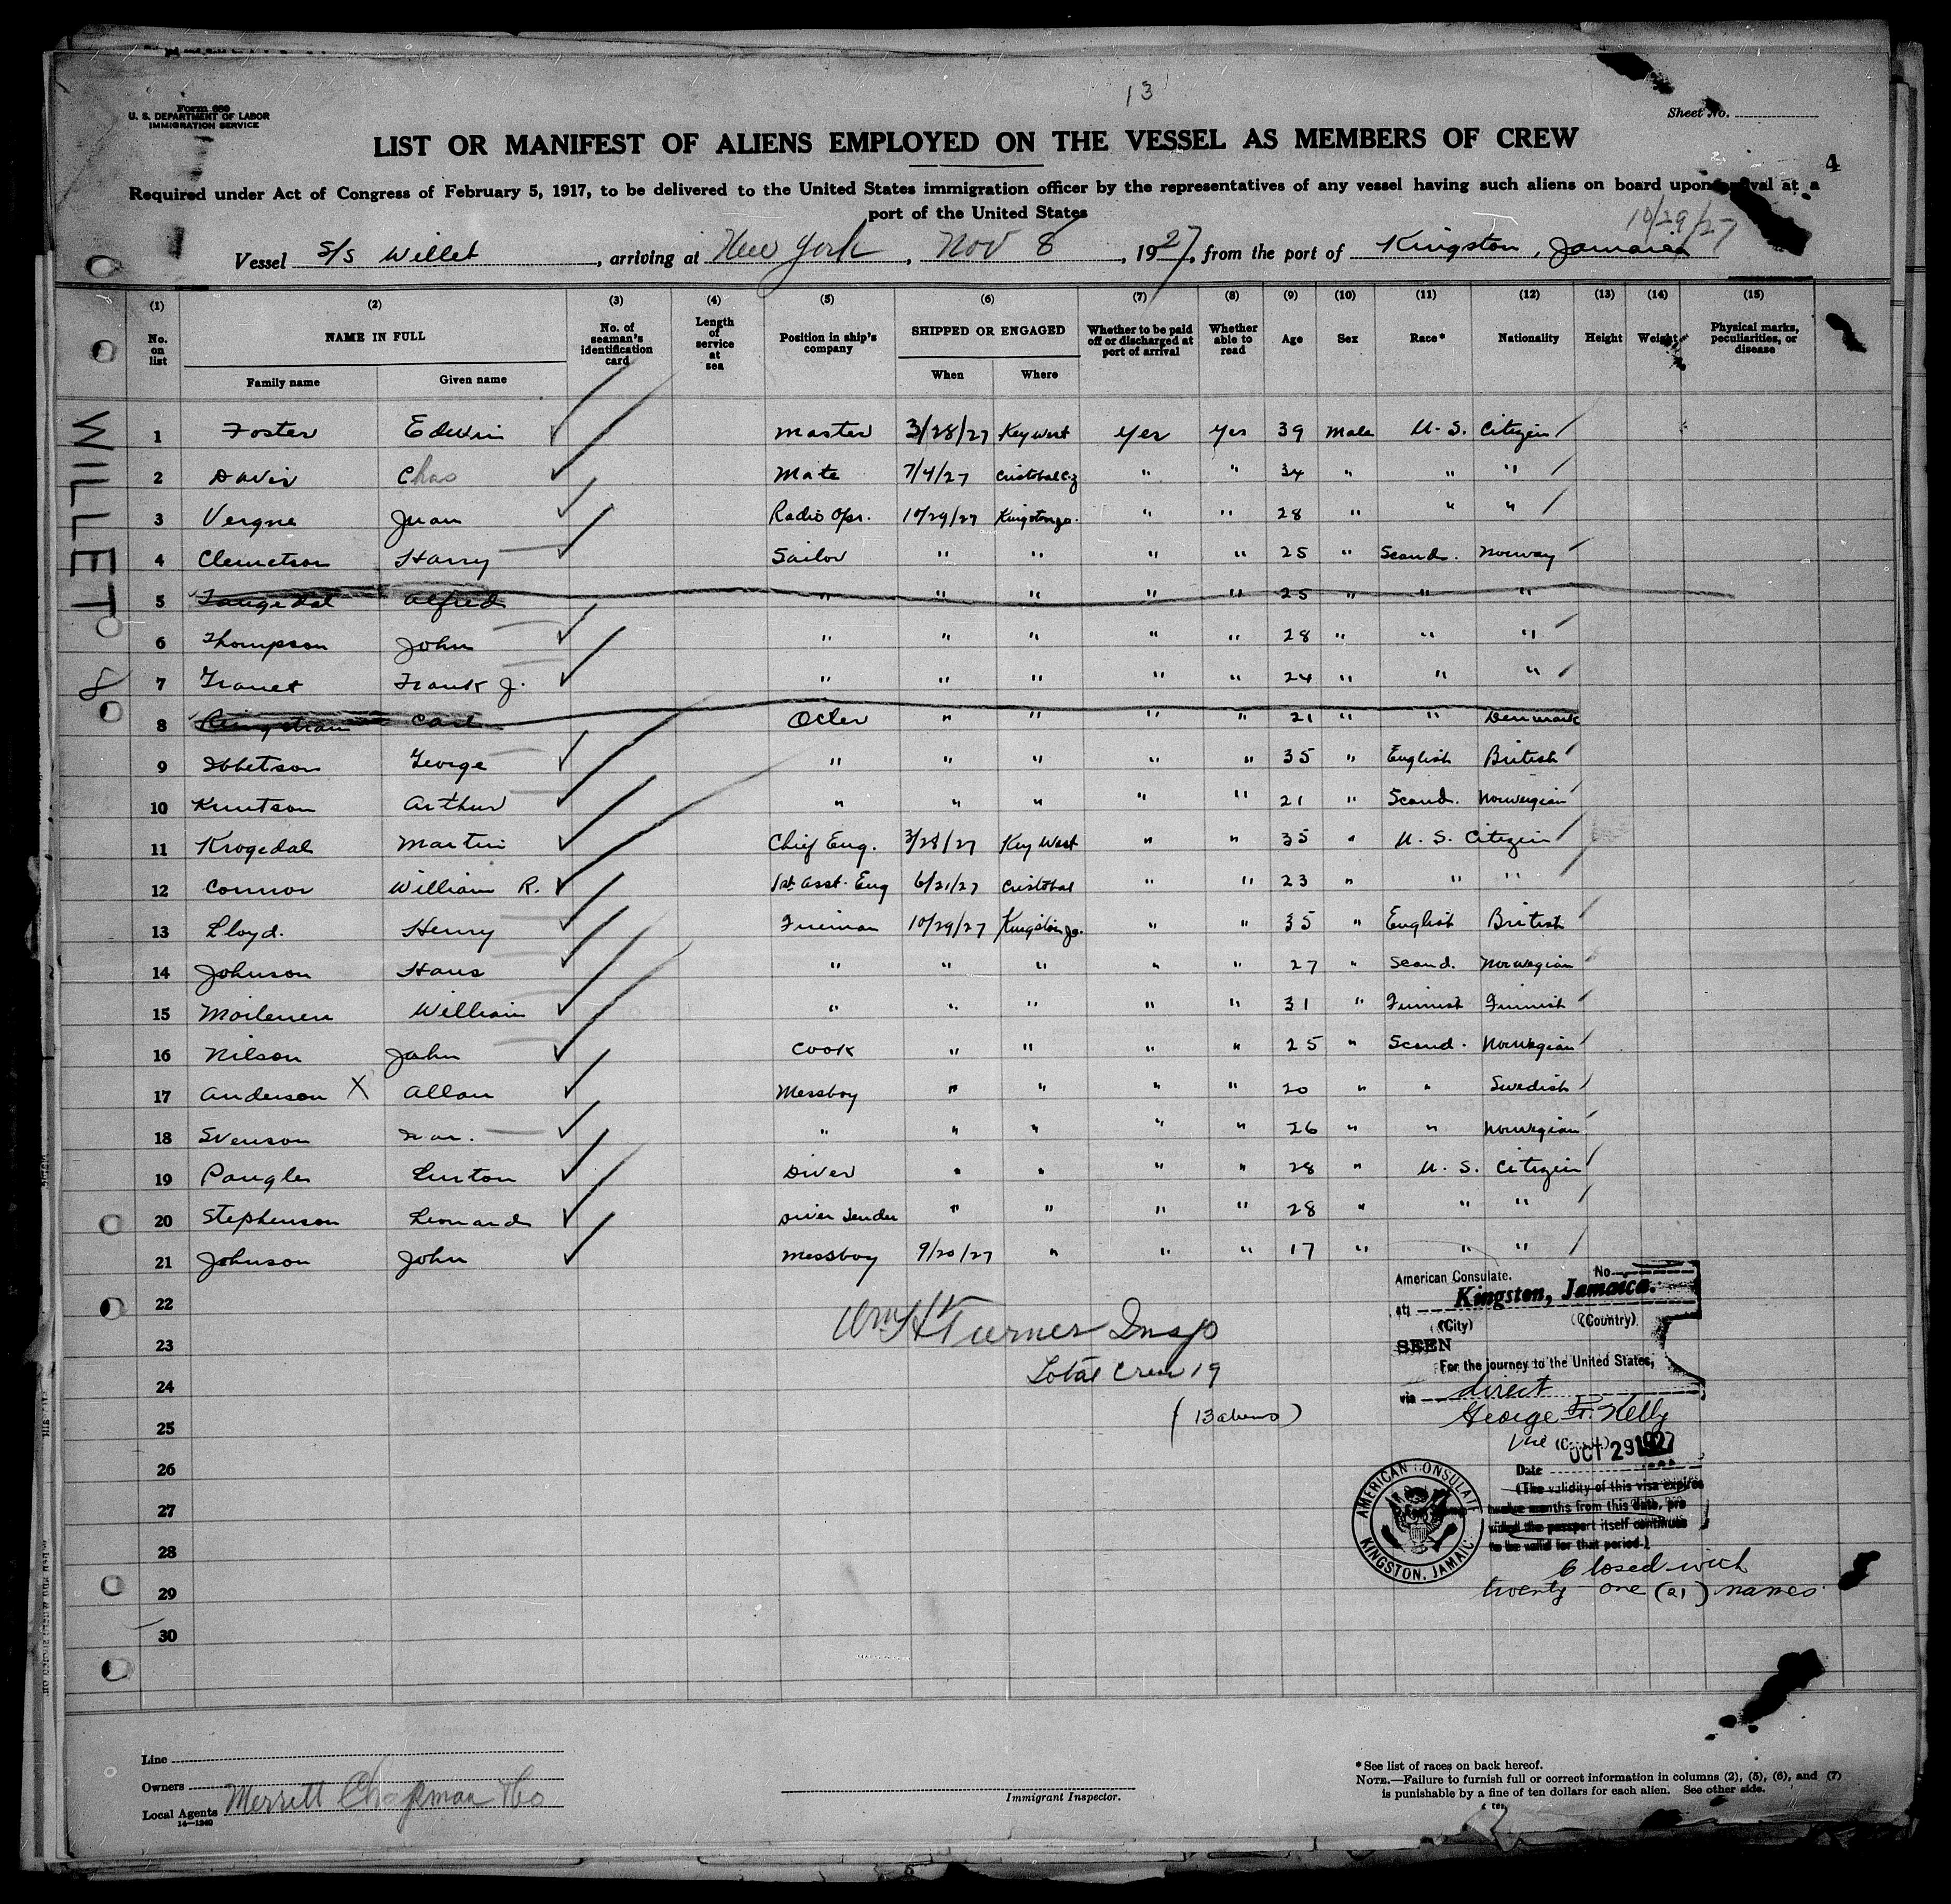 13
Form 689
U. S. DEPARTMENT OF LABOR
IMMIGRATION SERVICE
Sheet No.
LIST OR MANIFEST OF ALIENS EMPLOYED ON THE VESSEL AS MEMBERS OF CREW
4
Required under Act of Congress of February 5, 1917, to be delivered to the United States immigration officer by the representatives of any vessel having such aliens on board upon arrival at a
port of the United States
10/29/27
Vessel S/S Willet, arriving at New York, Nov 8, 1927, from the port of Kingston, Jamaica
(1) (2) (3) (4) (5) (6) (7) (8) (9) (10) (11) (12) (13) (14) (15)
No. on list NAME IN FULL No. of seaman's identification card Length of service at sea Position in ship's company SHIPPED OR ENGAGED Whether to be paid off or discharged at port of arrival Whether able to read Age Sex Race* Nationality Height Weight Physical marks, peculiarities, or disease
Family name Given name When Where
WILLET 8
1 Foster Edwin Master 3/28/27 Key West Yes Yes 39 Male U. S. Citizen
2 Davis Chas Mate 7/4/27 Cristobal C.Z " " 34 " " "
3 Vergne Juan Radio Opr. 10/29/27 Kingston Ja. " " 28 " " "
4 Clemetson Harry Sailor " " " " 25 " Scand. Norway
5 Tangedal Alfred " " " " " 25 " " "
6 Thompson John " " " " " 28 " " "
7 Frank J. " " " " " 24 " " "
8 Carl Oiler " " " " 21 " " Denmark
9 Ibbetson George " " " " " 35 " English British
10 Knutson Arthur " " " " " 21 " Scand. Norwegian
11 Krogedal Martin Chief Eng. 3/28/27 Key West " " 35 " U. S. Citizen
12 Connor William R. 1st Asst. Eng 6/21/27 Cristobal " " 23 " " "
13 Lloyd. Henry Fireman 10/29/27 Kingston Ja. " " 35 " English British
14 Johnson Hans " " " " " 27 " Scand. Norwegian
15 Moilenen William " " " " " 31 " Finnish Finnish
16 Nilson John Cook " " " " 25 " Scand. Norwegian
17 Anderson X Allan Messboy " " " " 20 " " Swedish
18 Svenson " " " " " 26 " " Norwegian
19 Pangles Diver " " " " 28 " U. S. Citizen
20 Stephenson Leonard Diver Tender " " " " 28 " " "
21 Johnson John Messboy 9/20/27 " " " 17 " " "
22
23
24
25
26
27
28
29
30
Wm H Turner Insp
Total Crew 19
(13 aliens)
American Consulate. No
at Kingston, Jamaica.
(City) (Country)
SEEN
For the journey to the United States,
via direct
George F. Kelly
Vice (Consul)
Date OCT 29 1927
(The validity of this visa expires
twelve months from this date, pro
vided the passport itself continues
to be valid for that period.)
AMERICAN CONSULATE
KINGSTON, JAMAICA
Closed with
twenty-one (21) names
Line
Owners
Local Agents Merritt Chapman & Co
14—1240
Immigrant Inspector.
* See list of races on back hereof.
NOTE.—Failure to furnish full or correct information in columns (2), (5), (6), and (7)
is punishable by a fine of ten dollars for each alien. See other side.